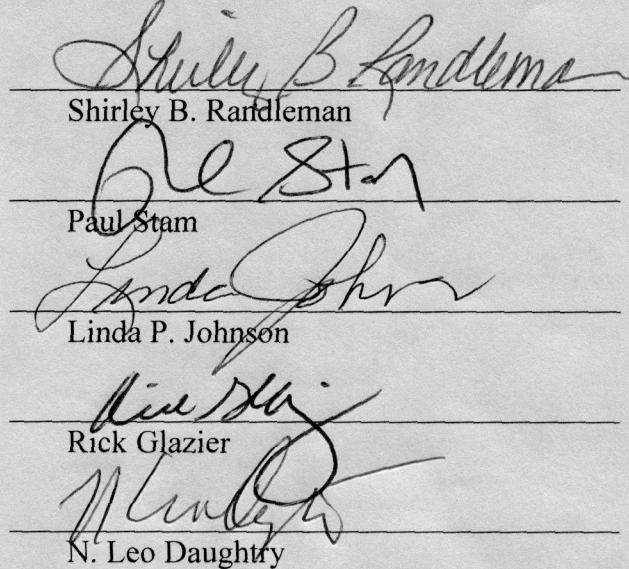 Shirley B. Randleman
Shirley B. Randleman
Paul Stam
Linda Johnson
Linda P. Johnson
Rick Glazier
N. Leo Daughtry